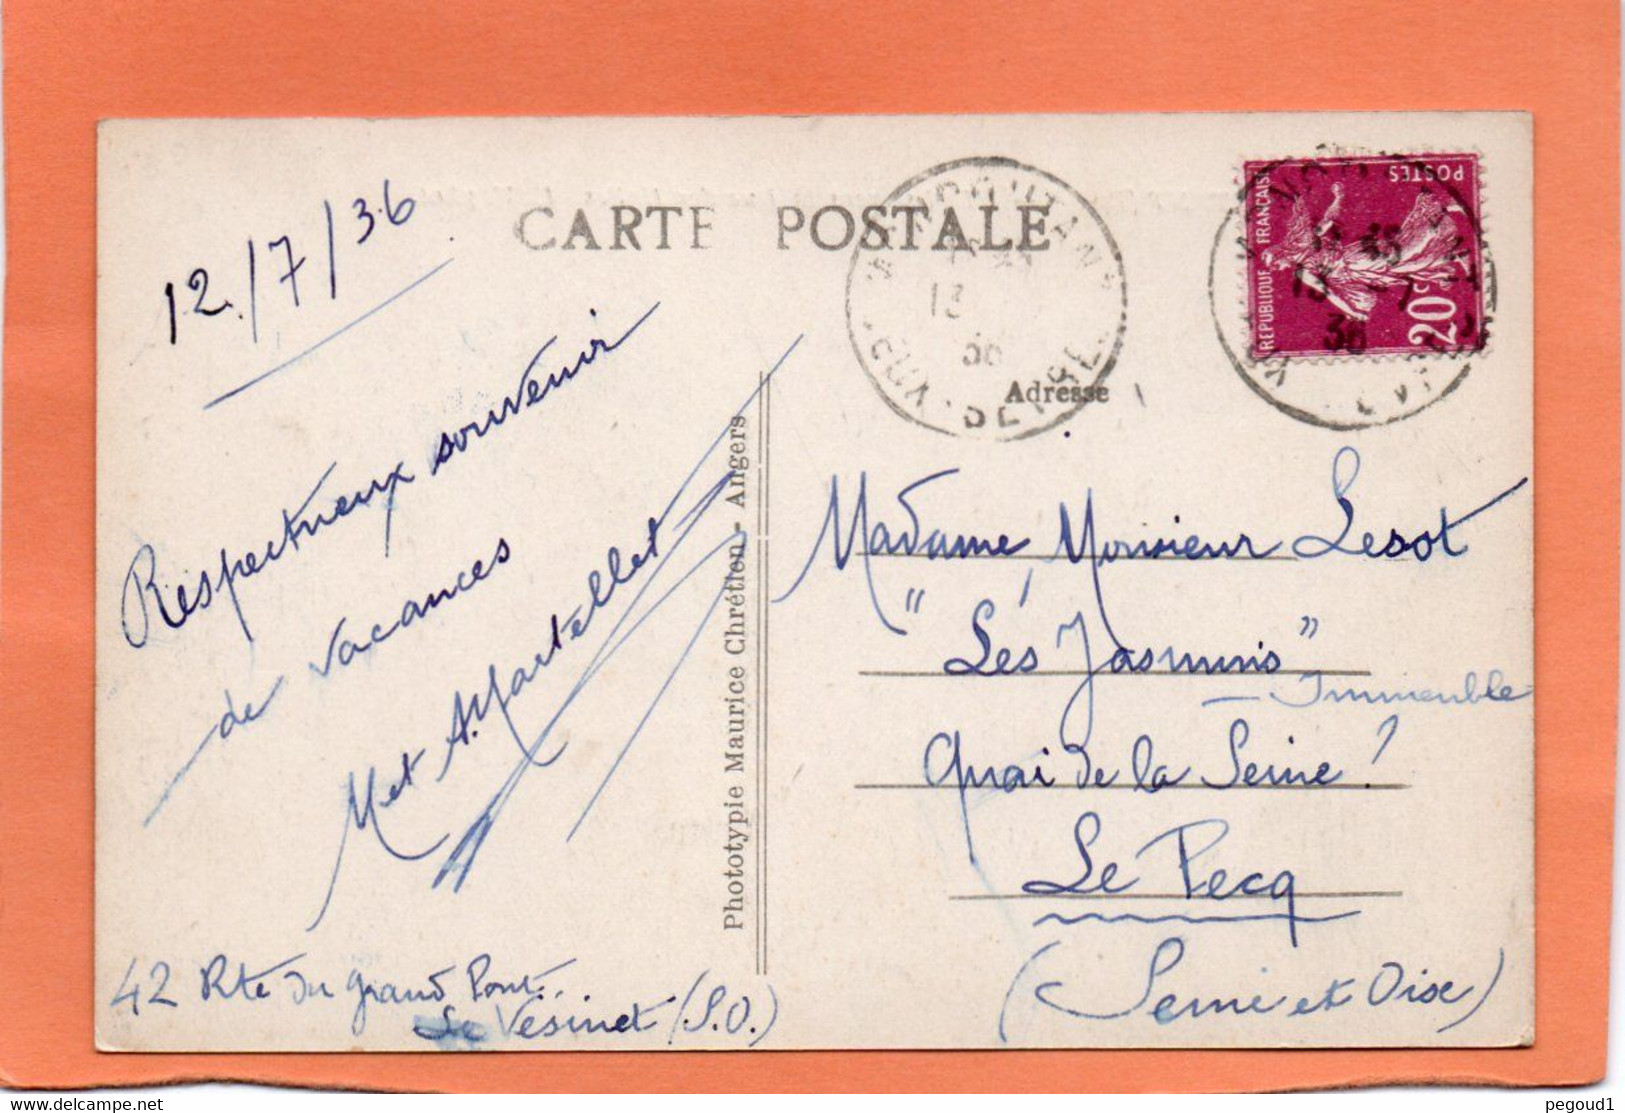 CARTE POSTALE
12./7/36
Respectueux souvenir
de vacances
M et A. Martellet
42 Rte du grand Pont.
Le Vésinet (S.O.)
Phototypie Maurice Chrétien - Angers
13
36
DEUX-SEVRES
Adresse
POSTES
REPUBLIQUE FRANÇAISE
20c
13 -7
36
Madame, Monsieur Lesot
"Les Jasmins"
- Immeuble
Quai de la Seine !
Le Pecq
(Seine et Oise)
www.delcampe.net
pegoud1